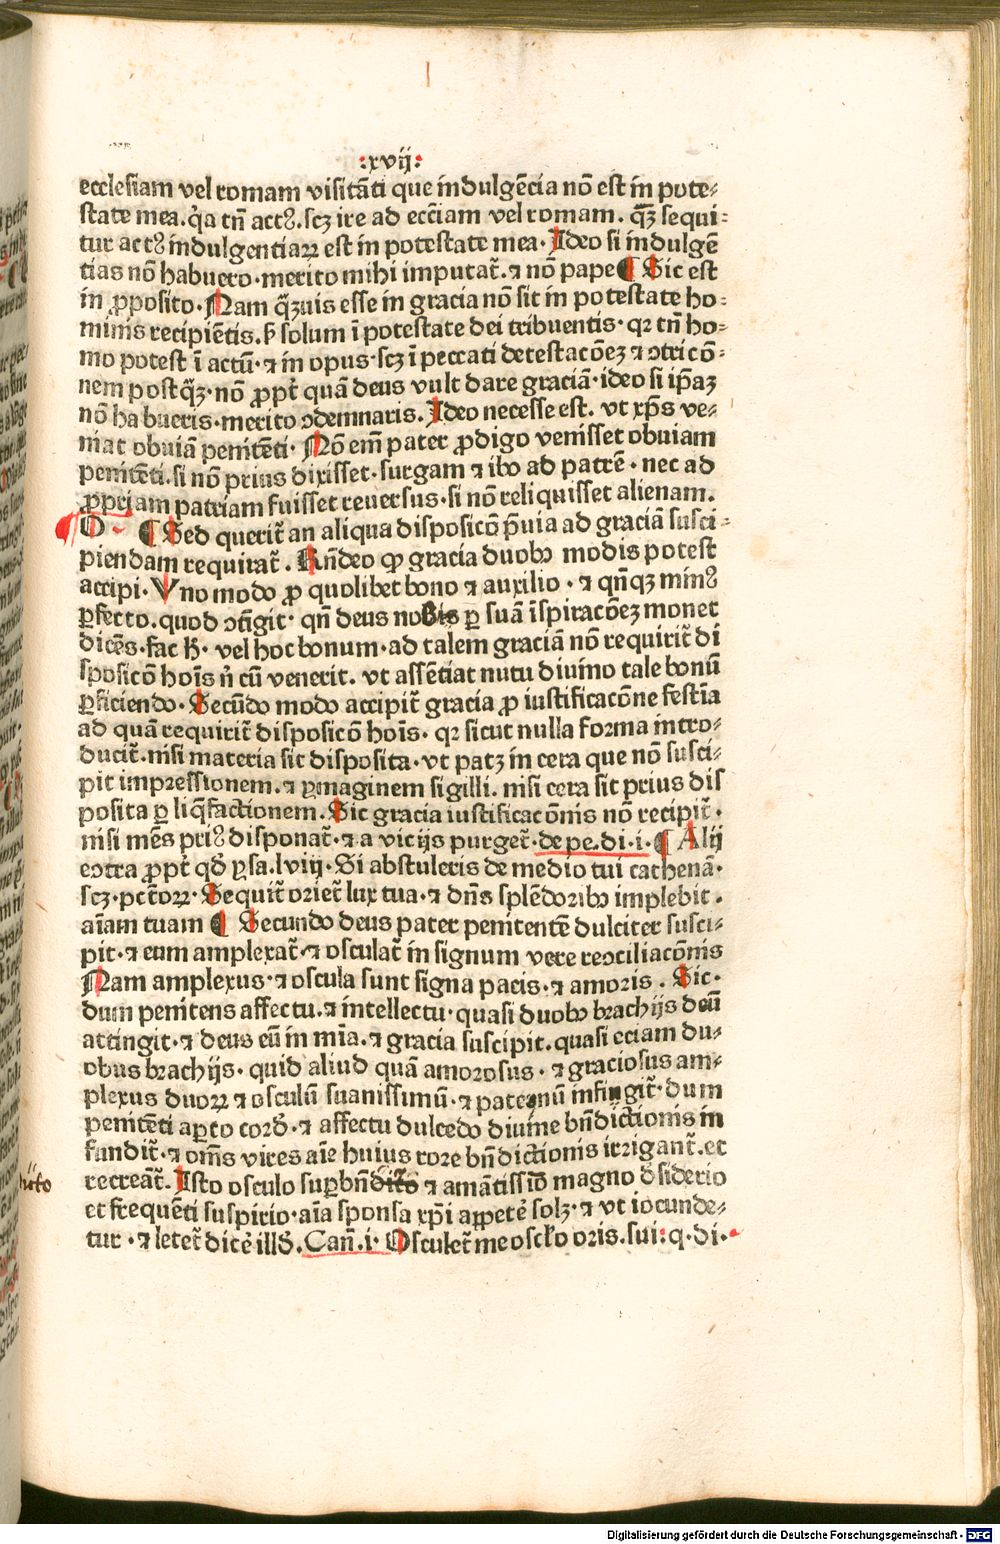 :xvij:
ecclesiam vel romam visitāti que indulgēcia nō est in pote-
state mea. q̇a tn̄ actꝰ. scꝫ ire ad ecc̄iam vel romam. q̄ꝫ sequi-
tur actꝰ indulgentiaꝝ est in potestate mea. Ideo si indulgē
tias nō habuero. merito mihi imputat᷑. ⁊ nō pape ¶ Sic est
in ꝓposito. Nam q̄ꝫuis esse in gracia nō sit in potestate ho-
minis recipiētis. ꝭ solum ī potestate dei tribuentis. qꝛ tn̄ ho-
mo potest ī actū. ⁊ in opus. scꝫ ī peccati detestacōeꝫ ⁊ ↄtricō-
nem postq̄ꝫ. nō ꝓpt̄ quā deus vult dare graciā. ideo si ip̄aꝫ
nō habueris. merito ↄdemnaris. Ideo necesse est. vt xp̄s ve-
niat obuiā penitēti. Nō em̄ pater ꝓdigo venisset obuiam
penitēti. si nō prius dixisset. surgam ⁊ ibo ad patrē. nec ad
ꝓpriam patriam fuisset reuersus. si nō reliquisset alienam.
O ¶ Sed querit᷑ an aliqua disposicō p̄uia ad graciā susci-
piendam requirat᷑. Rn̄deo ꝙ gracia duobꝰ modis potest
accipi. Vno modo ꝓ quolibet bono ⁊ auxilio. ⁊ qn̄qꝫ minꝰ
ꝑfecto. quod ↄtīgit. qn̄ deus nobis ꝑ suā īspiracōeꝫ monet
dicēs. fac ꝭ. vel hoc bonum. ad talem graciā nō requirit᷑ di
sposicō hoīs n̍ cū venerit. vt assētiat nutu diuino tale bonū
ꝑficiendo. Secūdo modo accipit᷑ gracia ꝓ iustificacōne festīa
ad quā requirit᷑ disposicō hoīs. qꝛ sicut nulla forma intro-
ducit᷑. nisi materia sic disposita. vt patꝫ in cera que nō susci-
pit impressionem. ⁊ ꝑ imaginem sigilli. nisi cera sit prius dis
posita ꝑ liq̄factionem. Sic gracia iustificacōnis nō recipit᷑.
nisi mēs priꝰ disponat᷑. ⁊ a vicijs purget᷑. de pe. di. i. ¶ Alij
eↄtra ꝓpt̄ qd̄ ysa. lviij. Si abstuleris de medio tui cathenā.
scꝫ. pctōꝝ. Sequit᷑ oriet᷑ lux tua. ⁊ dn̄s splēdoribꝰ implebit.
aīam tuam ¶ Secundo deus pater penitentē dulciter susci-
pit. ⁊ eum amplexat᷑. ⁊ osculat᷑ in signum vere recↄciliacōnis
Nam amplexus. ⁊ oscula sunt signa pacis. ⁊ amoris. Sic.
dum penitens affectu. ⁊ intellectu. quasi duobꝰ brachijs deū
attingit. ⁊ deus eū in mīa. ⁊ gracia suscipit. quasi eciam du-
obus brachijs. quid aliud quā amorosus. ⁊ graciosus am-
plexus duoꝝ ⁊ osculū suauissimū. ⁊ paternū infingit᷑. dum
penitēti aꝑto cord̛. ⁊ affectu dulcedo diuine bn̄dictionis in
fundit᷑. ⁊ om̄s vires aīe huius rore bn̄dictionis irrigant᷑. et
recreāt᷑. Isto osculo suꝑbn̄dito ⁊ amātissīo magno d̛siderio
hito
et frequēti suspirio. aīa sponsa xp̄i appetē solꝫ. ⁊ vt iocunde-
tur. ⁊ letet᷑ dicē illd̛. Can̄. i. Osculet᷑ me osclo oris. sui: q. di.
Digitalisierung gefördert durch die Deutsche Forschungsgemeinschaft - DFG